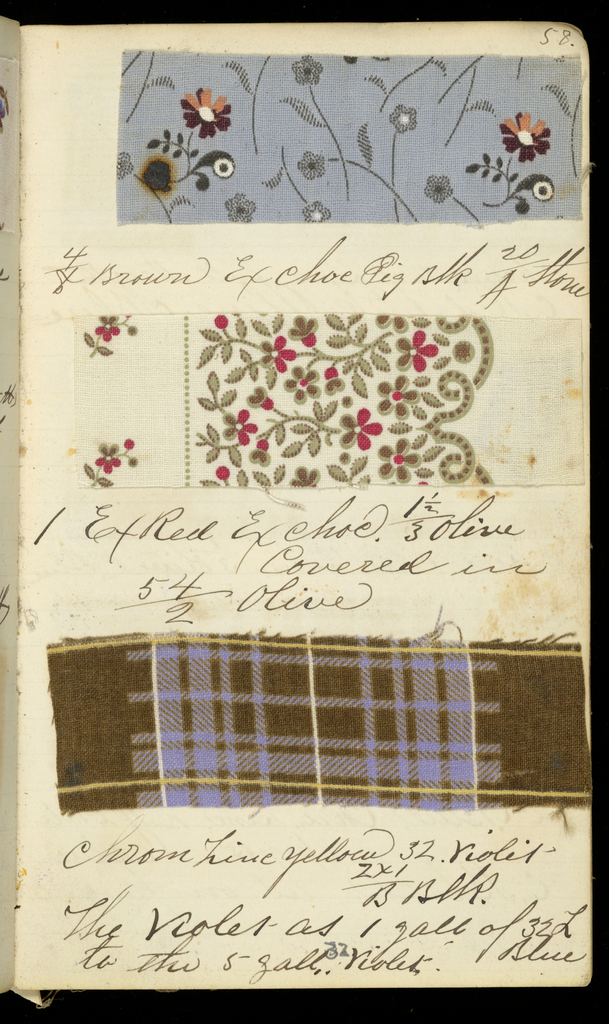 58.
4/8 Brown Ex Choc Pig Blk 20/A Stone
1 Ex Red Ex choc. 1½/3 Olive
Covered in
5 4/2 Olive
Chrom Zinc yellow 32. Violet
2x1/B Blk.
The Violet as 1 gall of 32 L
Blue
to the 5 gall. 32 Violet.